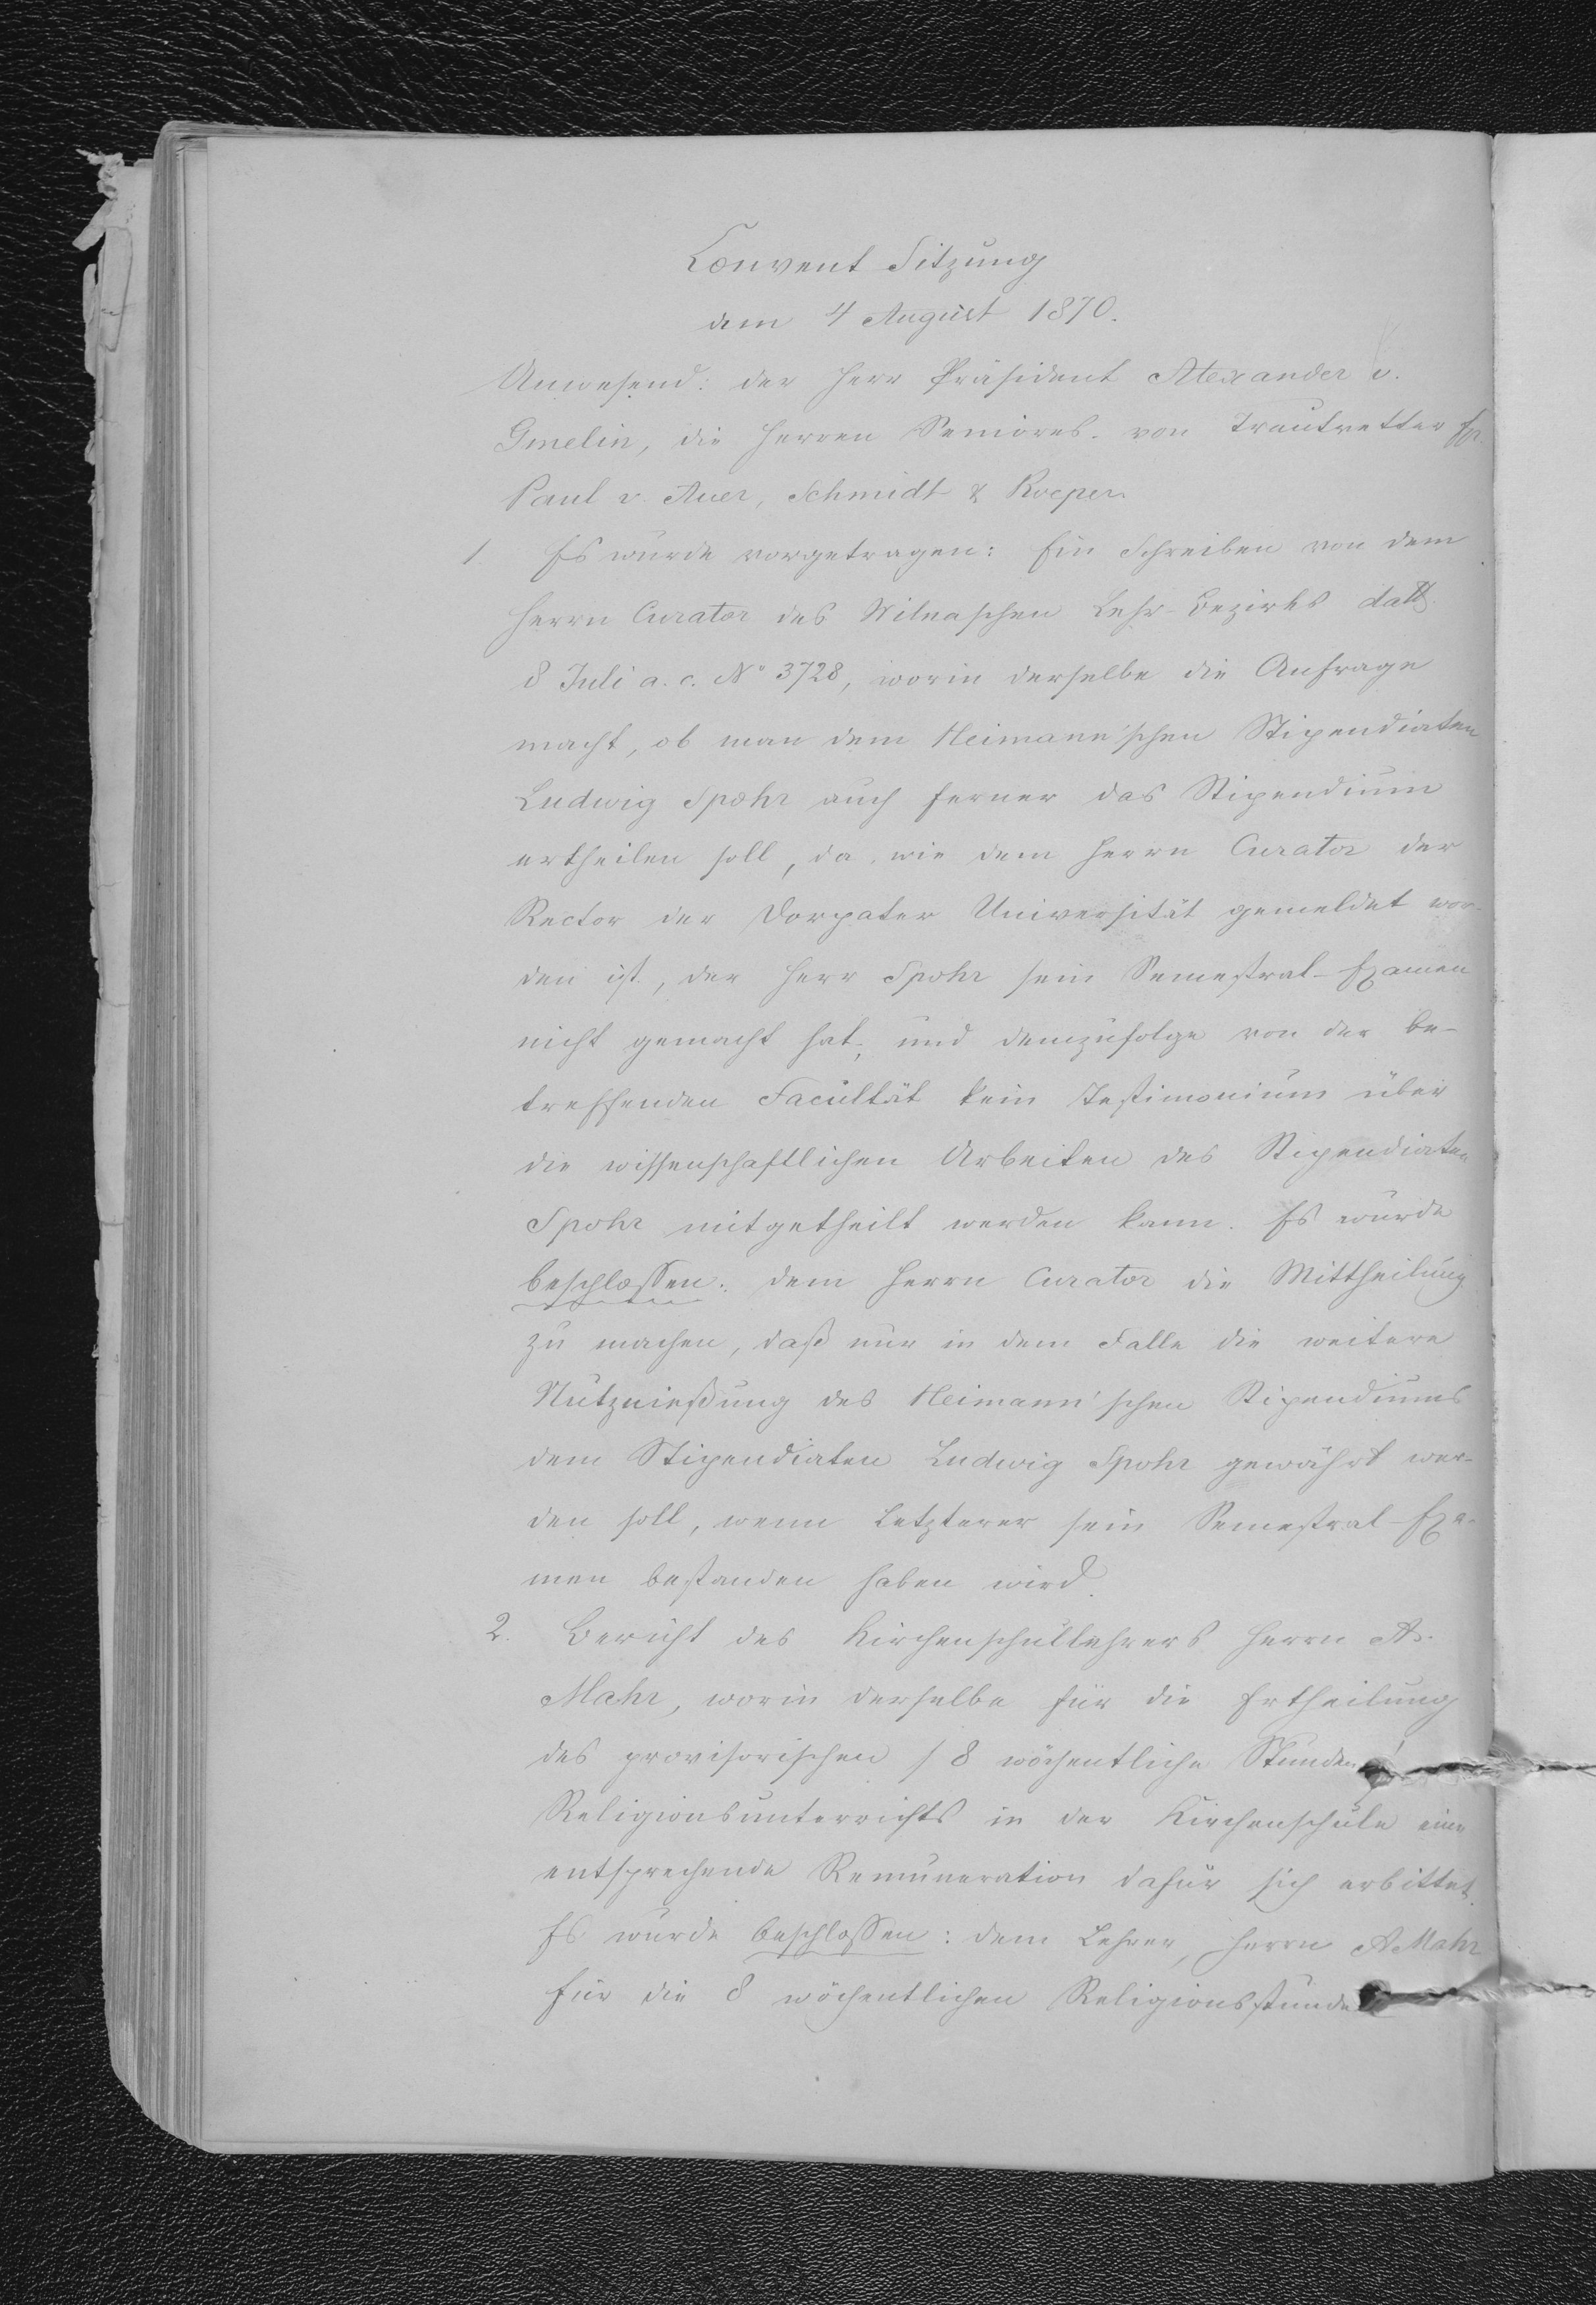 Convent Sitzung
dem 4 August 1870.
Anwesend: der Herr Präsident Alexander v.
Gmelin, die Herren Seniores. von Trautvetter
Paul v. Auer, Schmidt & Roeper.
1 Es wurde vorgetragen: Ein Schreiben von dem
Herrn Curator des Wilnaschen Lehr-Bezirks datt.
8 Juli a. c. No 3728, worin derselbe die Anfrage
macht, ob man dem Heimann'schen Stipendiaten
Ludwig Spohr auch ferner das Stipendium
ertheilen soll, da, wie dem Herrn Curator der
Rector der Dorpater Universität gemeldet wor-
den ist, der Herr Spohr sein Semestral-Examen
nicht gemacht hat, und demzufolge von der be-
treffenden Facultät kein Testimonium über
die wissenschaftlichen Arbeiten des Stipendiaten
Spohr mitgetheilt werden kann. Es wurde
beschlossen: dem Herrn Curator die Mittheilung
zu machen, daß nur in dem Falle die weitere
Nutznießung des Heimann'schen Stipendiums
dem Stipendiaten Ludwig Spohr gewährt wer-
den soll, wenn Letzterer sein Semestral-Exa-
men bestanden haben wird.
2. Bericht des Kirchenschullehrers Herrn A.
Mahr, worin derselbe für die Ertheilung
des provisorischen / 8 wöchentliche Stunden /
Religionsunterrichts in der Kirchenschule eine
entsprechende Remuneration dafür sich erbittet.
Es wurde beschlossen: dem Lehrer, Herrn A. Mahr
für die 8 wöchentlichen Religionsstunden